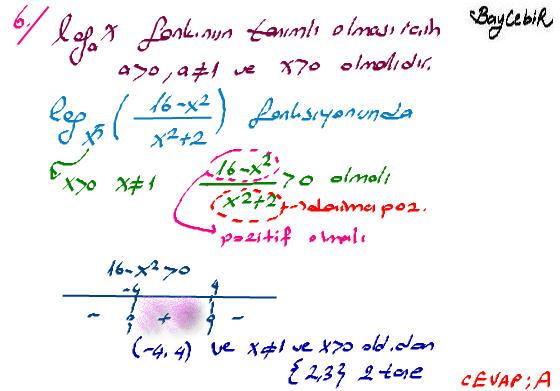 6/ logₐx fonk.nun tanımlı olması için
BayCebiR
a>0, a≠1 ve x>0 olmalıdır.
logₓ ( 16-x² / x²+2 ) fonksiyonunda
x>0 x≠1 16-x² / x²+2 >0 olmalı
→ daima poz.
pozitif olmalı
16-x²>0
-4 4
- + -
(-4,4) ve x≠1 ve x>0 old.dan
{2,3} 2 tane
CEVAP: A